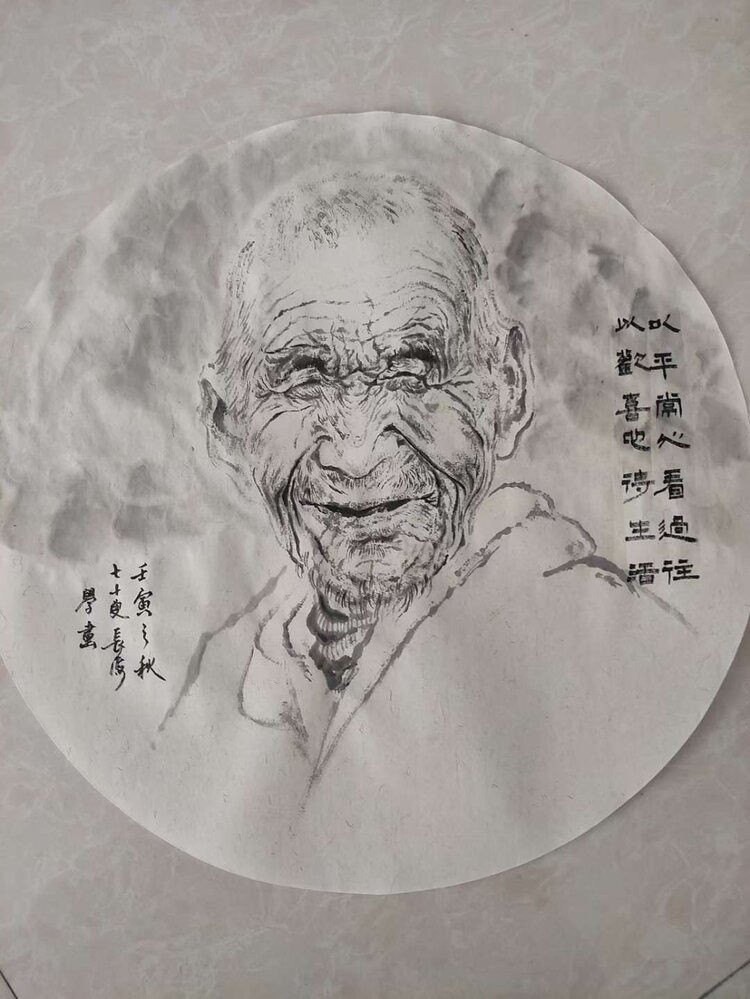 以平常心看過往
以歡喜心待生活
壬寅之秋
七十叟長海
學畫